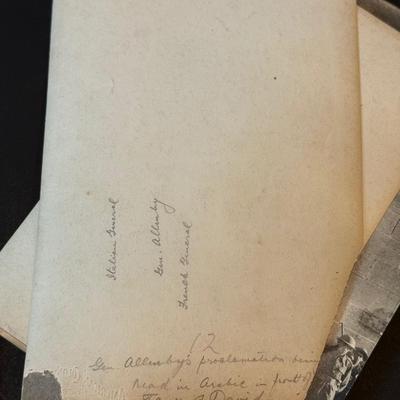 Italian General
Gen. Allenby
French General
12
Gen Allenby's proclamation being
read in Arabic in front of
Tower of David